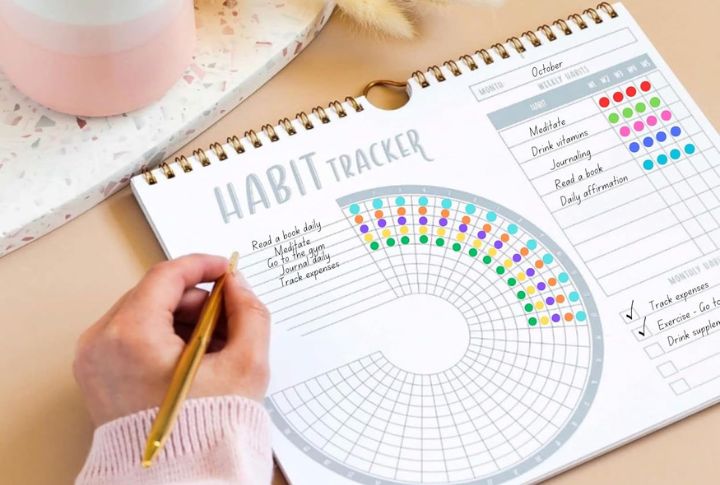 October
MONTH:
WEEKLY HABITS
HABIT W1 W2 W3 W4 W5
Meditate
Drink vitamins
Journaling
Read a book
Daily affirmation
HABIT TRACKER
Read a book daily
Meditate
Go to the gym
Journal daily
Track expenses
MONTHLY
Track expenses
Exercise - Go to
Drink